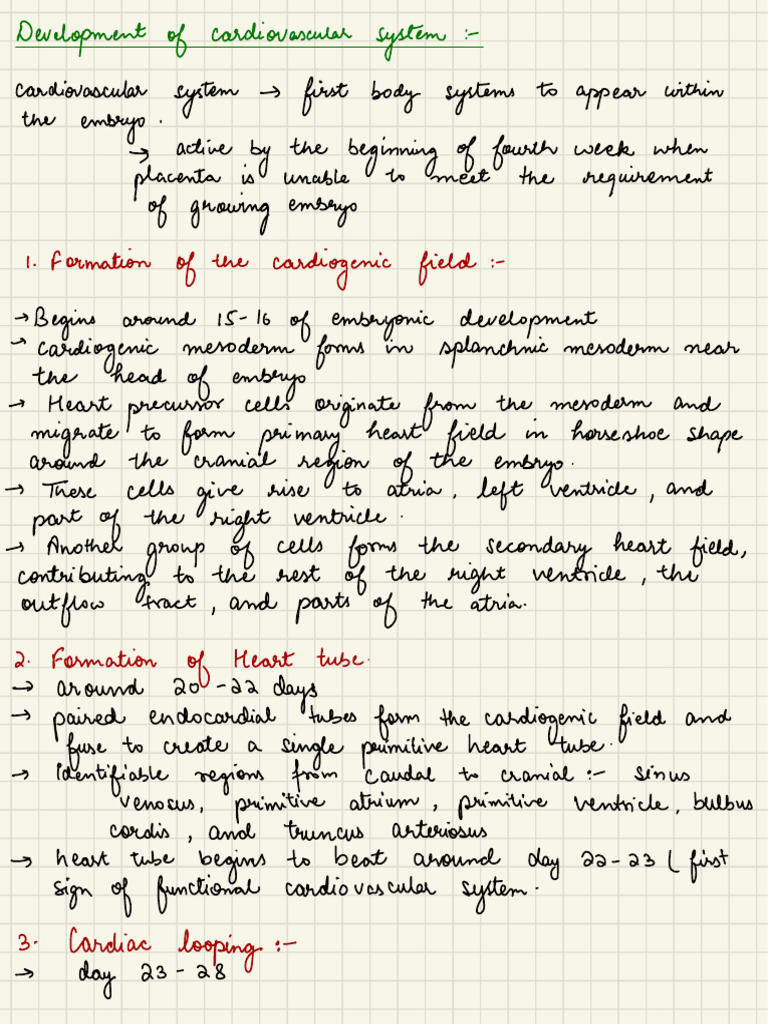 Development of cardiovascular system :-
cardiovascular system → first body systems to appear within
the embryo.
→ active by the beginning of fourth week when
placenta is unable to meet the requirement
of growing embryo
1. Formation of the cardiogenic field :-
→ Begins around 15-16 of embryonic development
→ cardiogenic mesoderm forms in splanchnic mesoderm near
the head of embryo
→ Heart precursor cells originate from the mesoderm and
migrate to form primary heart field in horseshoe shape
around the cranial region of the embryo.
→ These cells give rise to atria, left ventricle, and
part of the right ventricle.
→ Another group of cells forms the secondary heart field,
contributing to the rest of the right ventricle, the
outflow tract, and parts of the atria.
2. Formation of Heart tube.
→ around 20-22 days
→ paired endocardial tubes form the cardiogenic field and
fuse to create a single primitive heart tube.
→ identifiable regions from caudal to cranial :- sinus
venosus, primitive atrium, primitive ventricle, bulbus
cordis, and truncus arteriosus
→ heart tube begins to beat around day 22-23 ( first
sign of functional cardiovascular system.
3. Cardiac looping :-
→ day 23-28